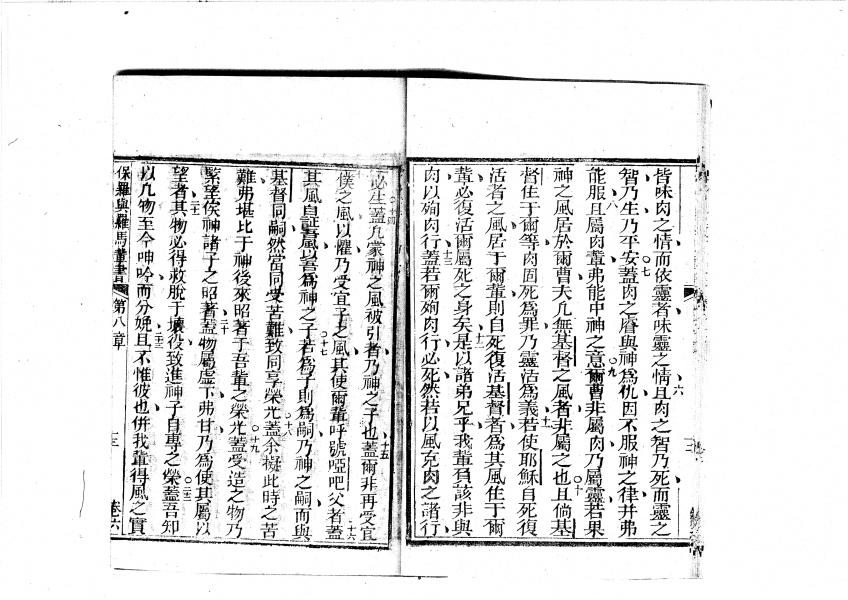 皆味肉之情而依靈者味靈之情且肉之智乃死而靈之
智乃生乃平安蓋肉之睿與神為仇因不服神之律并弗
能服且屬肉輩弗能中神之意爾曹非屬肉乃屬靈若果
神之風居於爾曹夫凡無基督之風者非屬之也且倘基
督住于爾等肉固死為罪乃靈活為義若使耶穌自死復
活者之風居于爾輩則自死復活基督者為其風住于爾
輩必復活爾屬死之身矣是以諸弟兄乎我輩負該非與
肉以殉肉行蓋若爾殉肉行必死然若以風克肉之諸行
必生蓋凡蒙神之風被引者乃神之子也蓋爾非再受宜
僕之風以懼乃受宜子之風其使爾輩呼號啞吧父者蓋
其風自証吾風以吾為神之子若為子則為嗣乃神之嗣而與
基督同嗣然當同受苦難致同享榮光蓋余擬此時之苦
難弗堪比于神後來昭著于吾輩之榮光蓋受造之物乃
緊望俟神諸子之昭著蓋物屬虛下弗甘乃為使其屬以
望者其物必得救脫于壞役致進神子自專之榮蓋吾知
以凡物至今呻吟而分娩且不惟彼也併我輩得風之實
保羅與羅馬輩書 第八章 十三 卷六